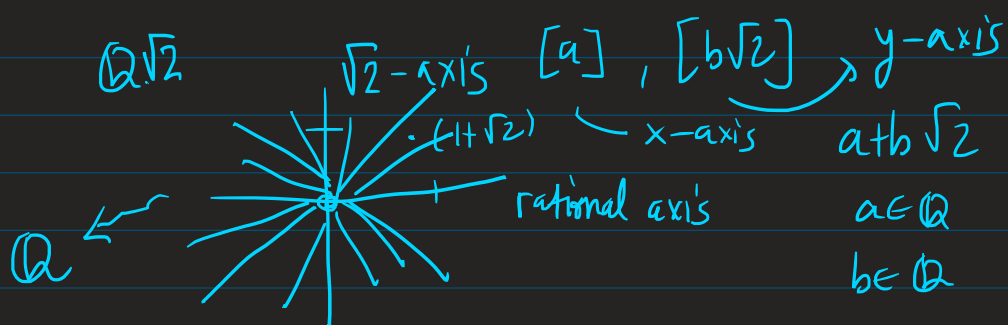 ℚ√2
√2-axis
[a] , [b√2]
y-axis
(1+√2)
x-axis
a+b√2
rational axis
a∈ℚ
ℚ
b∈ℚ